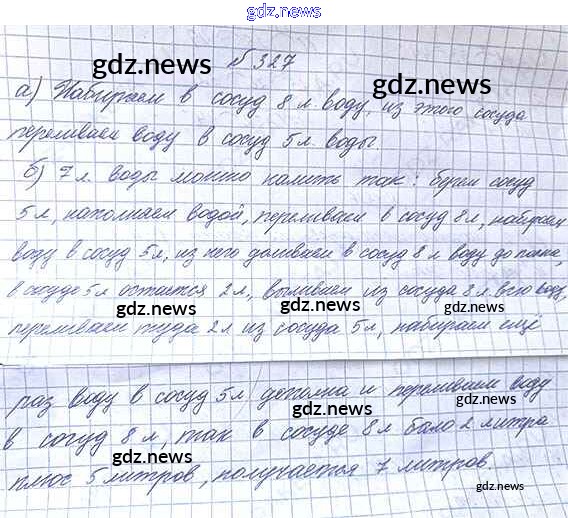 gdz.news
№ 327
gdz.news
gdz.news
а) Набираем в сосуд 8 л воду, из этого сосуда
переливаем воду в сосуд 5 л. воды.
б) 7 л. воды можно налить так: берем сосуд
5 л, наполняем водой, переливаем в сосуд 8 л, набираем
воду в сосуд 5 л, из него доливаем в сосуд 8 л воду до полна,
в сосуде 5 л остается 2 л, выливаем из сосуда 8 л всю воду,
gdz.news
gdz.news
переливаем туда 2 л из сосуда 5 л, набираем ещё
раз воду в сосуд 5 л дополна и переливаем воду
gdz.news
gdz.news
в сосуд 8 л, так в сосуде 8 л было 2 литра
gdz.news
плюс 5 литров, получается 7 литров.
gdz.news